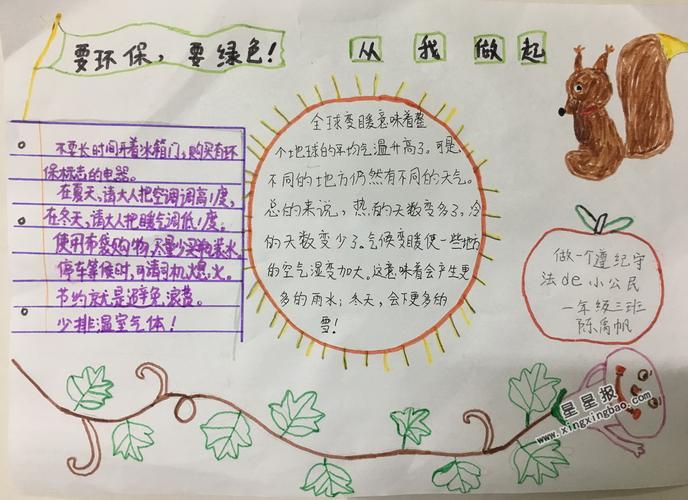 要环保，要绿色！
从我做起
不要长时间开着冰箱门，购买有环
保标志的电器。
在夏天，请大人把空调调高1度，
在冬天，请大人把暖气调低1度。
使用布袋购物，尽量少买瓶装水。
停车等候时，可请司机熄火。
节约就是避免浪费。
少排温室气体！
全球变暖意味着整
个地球的平均气温升高了。可是，
不同的地方仍然有不同的天气。
总的来说，热的天数变多了，冷
的天数变少了。气候变暖使一些地方
的空气湿度加大。这意味着会产生更
多的雨水；冬天，会下更多的
雪！
做一个遵纪守
法de小公民
一年级三班
陈禹帆
星星报
www.xingxingbao.com